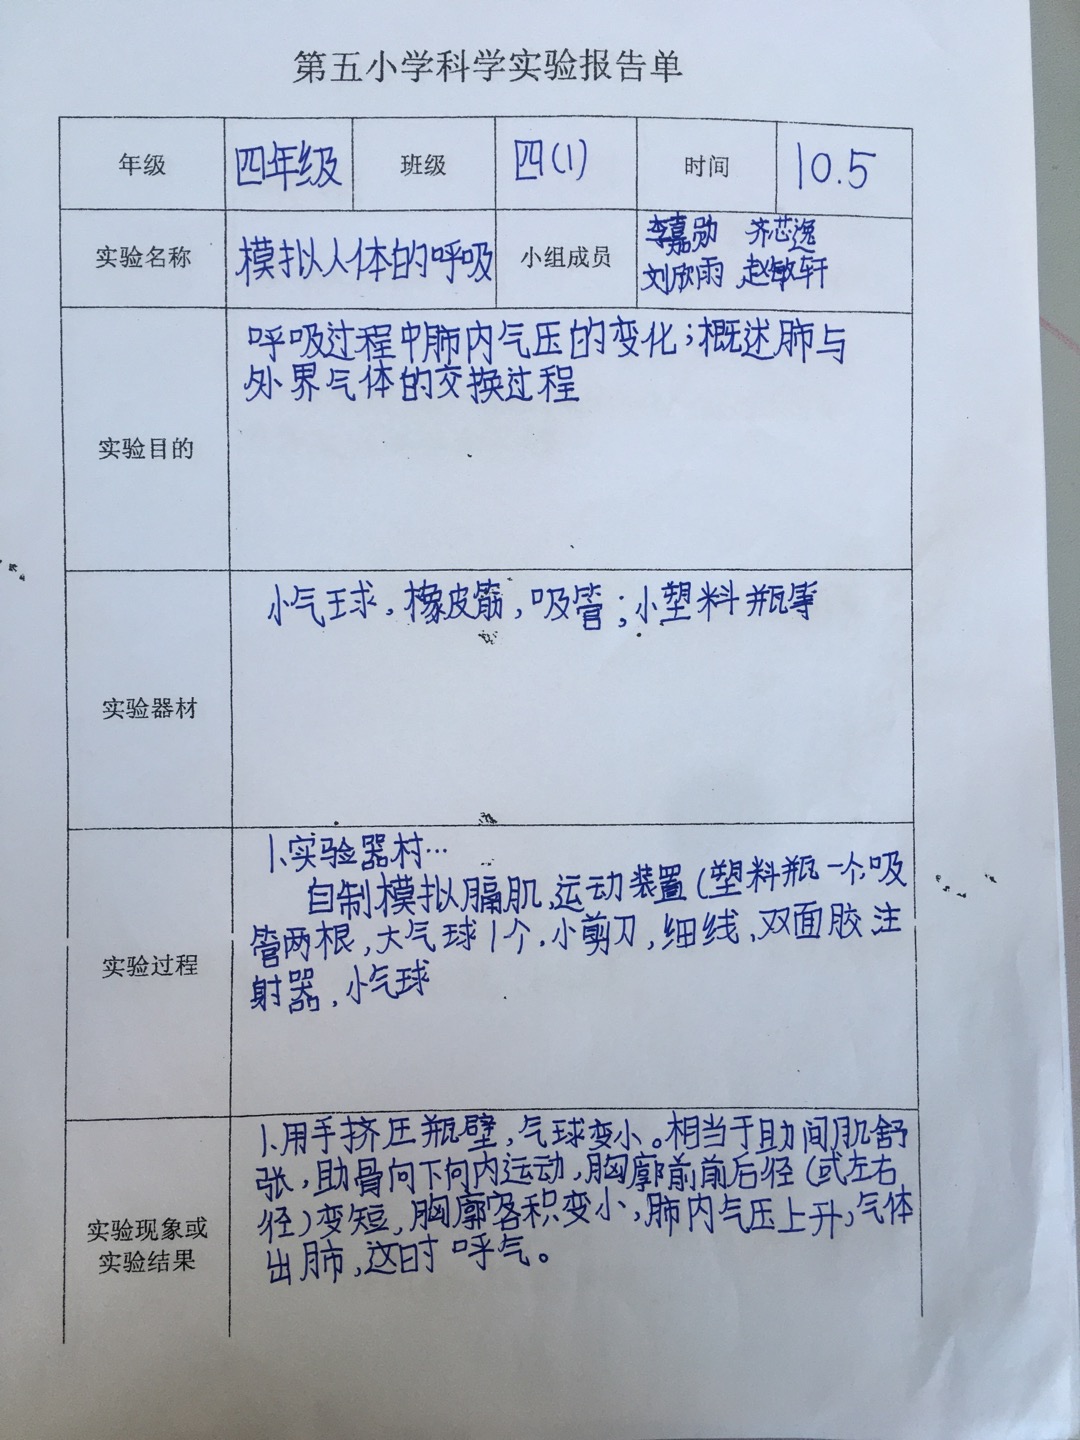 第五小学科学实验报告单
年级 四年级 班级 四(1) 时间 10.5
实验名称 模拟人体的呼吸 小组成员 李嘉勋 齐芯逸
刘欣雨 赵敏轩
实验目的
呼吸过程中肺内气压的变化;概述肺与
外界气体的交换过程
实验器材
小气球,橡皮筋,吸管;小塑料瓶等
实验过程
1、实验器材…
自制模拟膈肌,运动装置(塑料瓶一个,吸
管两根,大气球1个,小剪刀,细线,双面胶注
射器,小气球
实验现象或
实验结果
1.用手挤压瓶壁,气球变小。相当于助间肌舒
张,助骨向下向内运动,胸廓前前后径(或左右
径)变短,胸廓容积变小,肺内气压上升,气体
出肺,这时呼气。